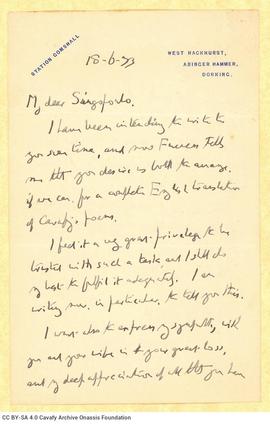 STATION GOMSHALL
WEST HACKHURST,
ABINGER HAMMER,
DORKING.
18-6-33
My dear Singopoulo.
I have been intending to write to
you some time, and now Furness tells
me that you desire us both to arrange,
if we can, for a complete English translation
of Cavafy's poems.
I feel it a very great privilege to be
trusted with such a task, and I shall do
my best to fulfil it adequately. I am
writing now, in particular, to tell you this.
I want also to express my sympathy with
you and your wife in your great loss,
and my deep appreciation of all that you have
CC BY-SA 4.0 Cavafy Archive Onassis Foundation